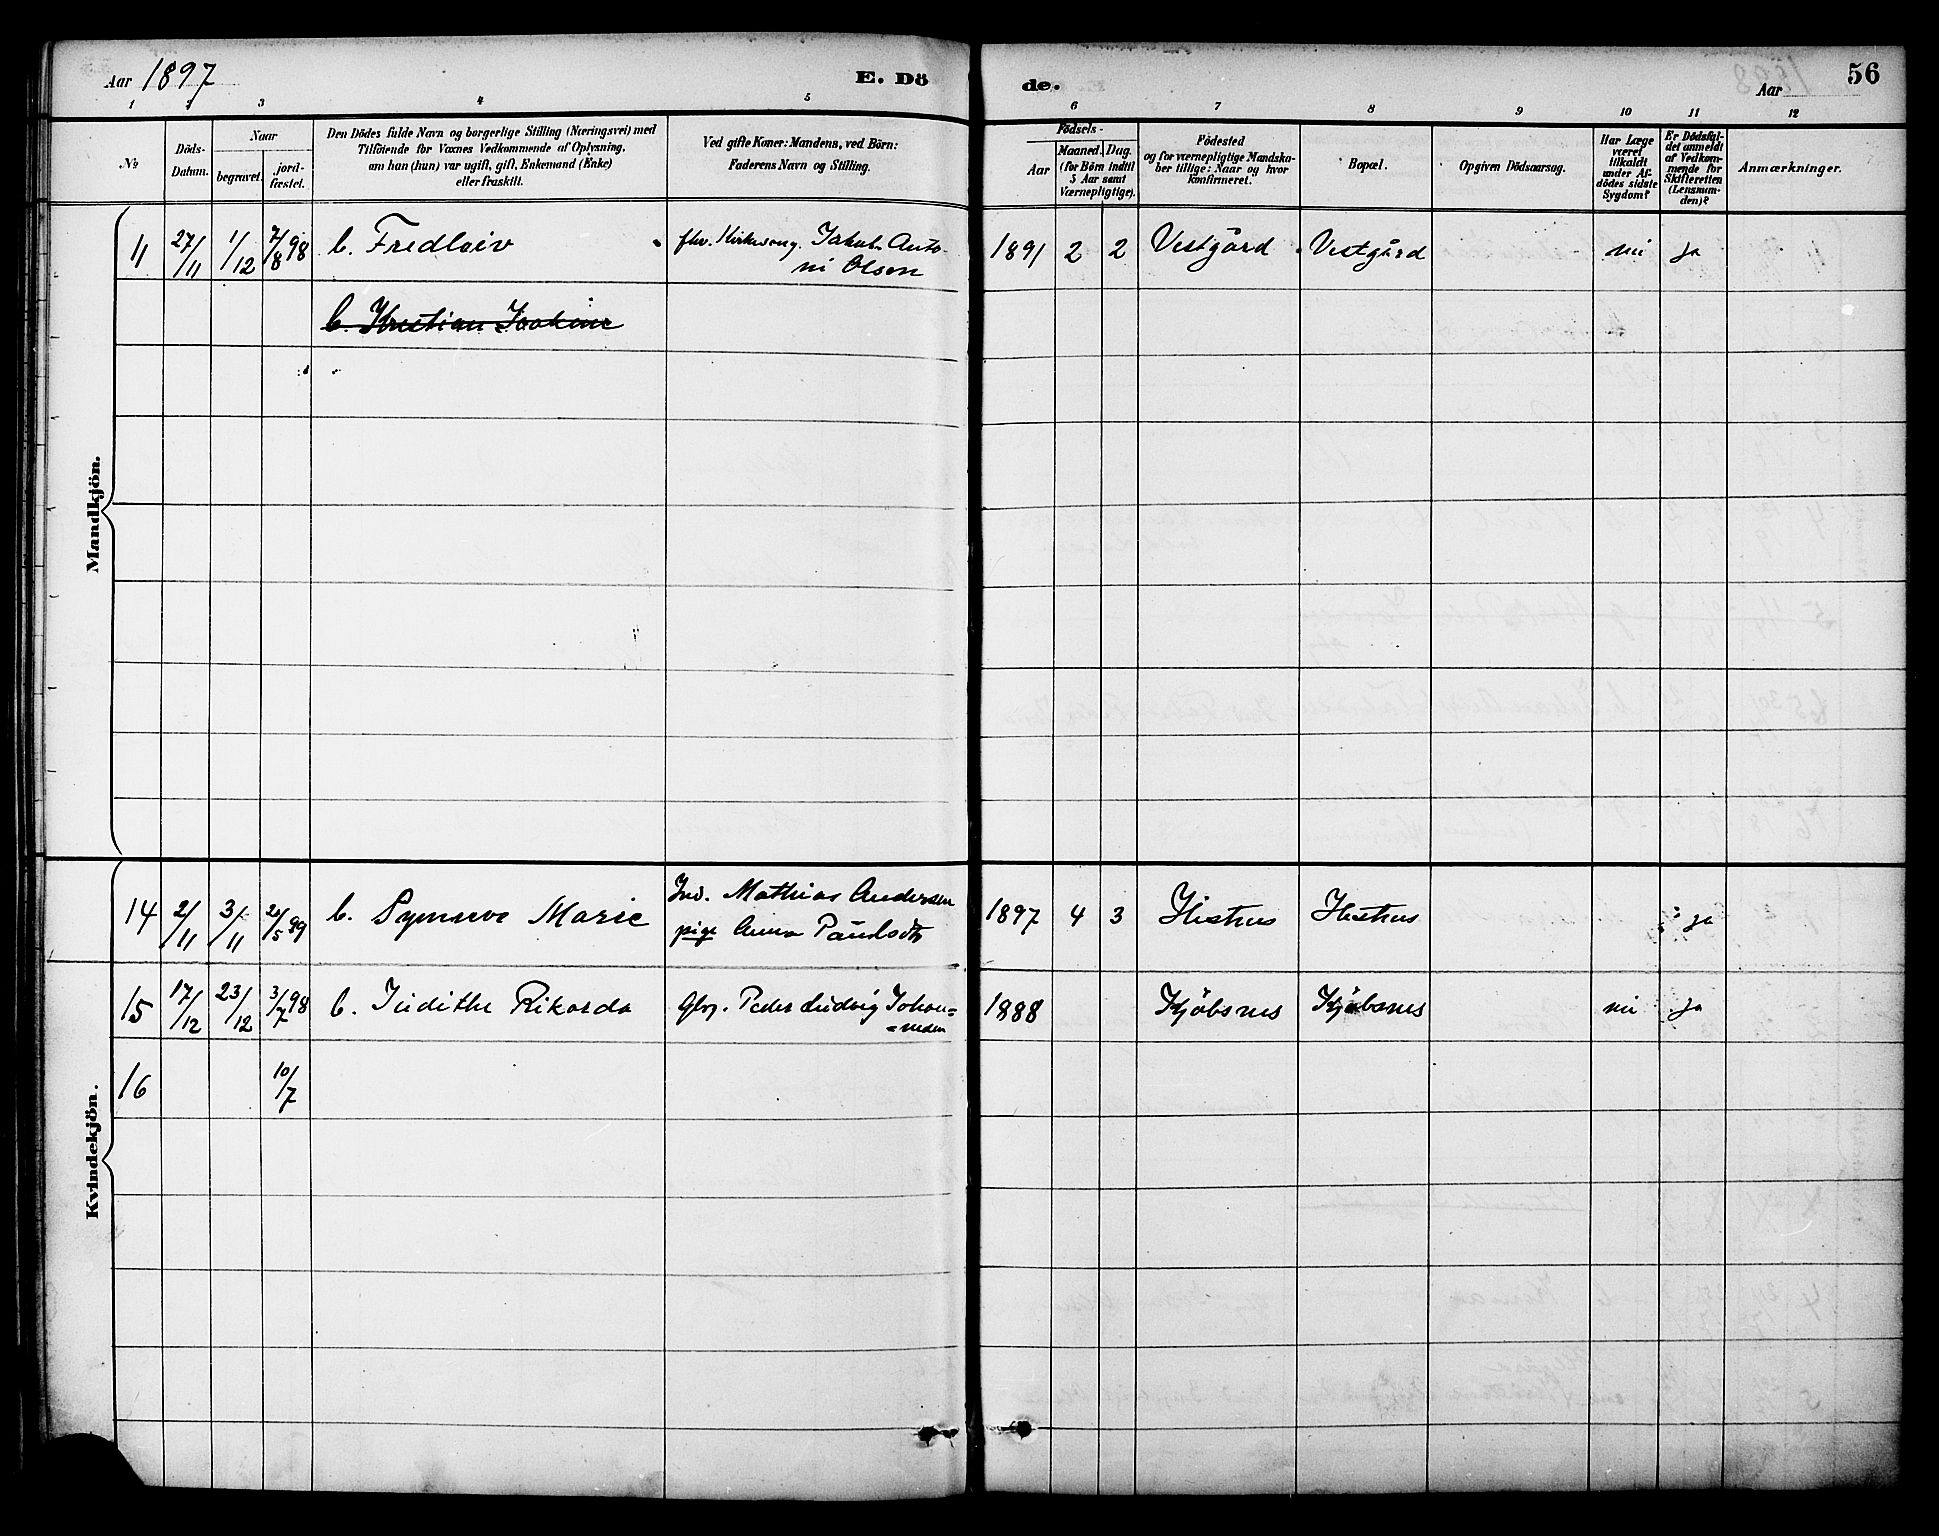 Aar 1897 E. Dö de. Aar 56
1 2 3 4 5 6 7 8 9 10 11 12
No
Döds-Datum.
Naar
begravet. jord-fæstet.
Den Dödes fulde Navn og borgerlige Stilling (Næringsvei) med
Tilföiende for Voxnes Vedkommende af Oplysning,
om han (hun) var ugift, gift, Enkemand (Enke)
eller fraskilt.
Ved gifte Koner: Mandens, ved Börn:
Faderens Navn og Stilling.
Födsels-
Aar Maaned. Dag.
(for Börn indtil
5 Aar samt
Værnepligtige).
Födested
og for værnepligtige Mandska-
ber tillige: Naar og hvor
konfirmeret.
Bopæl.
Opgiven Dödsaarsag.
Har Læge
været
tilkaldt
under Af-
dödes sidste
Sygdom?
Er Dödsfal-
det anmeldt
af Vedkom-
mende for
Skifteretten
(Lensman-
den)?
Anmærkninger.
Mandkjön.
11 27/11 1/12 7/8 98 b. Fredleiv fhv. Kirkesang. Jakob Anto- 1891 2 2 Vestgård Vestgård nei ja
ni Olsen
b. Kristian Joakim
Kvindekjön.
14 2/11 3/11 26/5 99 b. Synneve Marie Ind. Mathias Andersen 1897 4 3 Histnes Histnes ja
pige Anna Paulsdtr
15 17/12 23/12 3/7 98 b. Judithe Rikarda Gbr. Peder Ludvig Johan= 1888 Kjöbsnes Kjöbsnes nei ja
=nesen
16 10/7